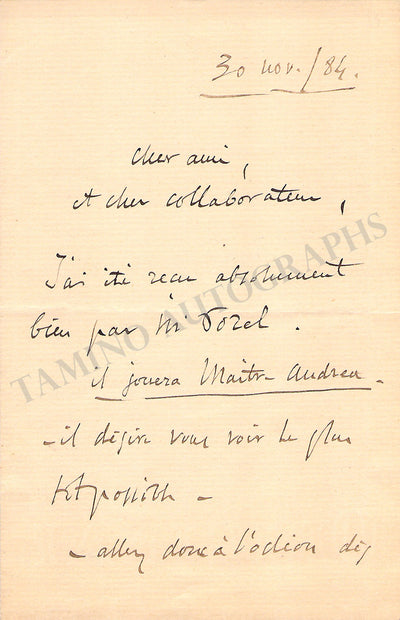 30 nov. / 84.
Cher ami,
et cher collaborateur,
J'ai été reçu absolument
bien par Mr Porel.
il jouera Maître Andrea.
- il désire vous voir le plus
tôt possible -
- allez donc à l'odéon dès
TAMINO AUTOGRAPHS